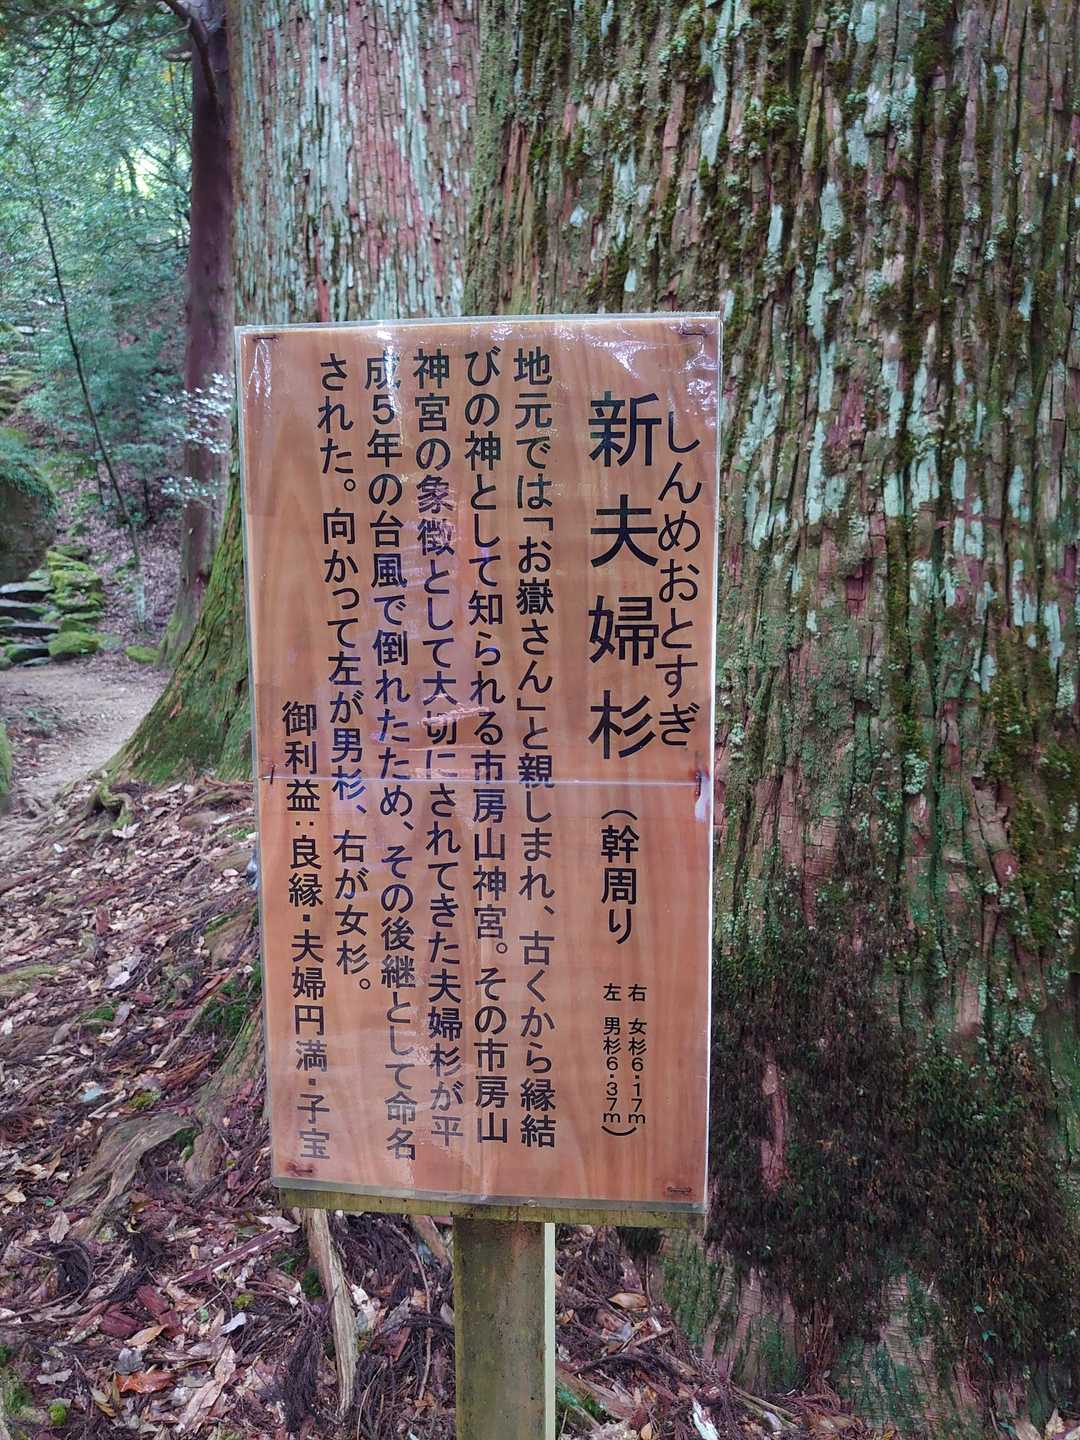 しんめおとすぎ
新夫婦杉（幹周り 右 女杉6・17m
左 男杉6・37m）
地元では「お嶽さん」と親しまれ、古くから縁結
びの神として知られる市房山神宮。その市房山
神宮の象徴として大切にされてきた夫婦杉が平
成5年の台風で倒れたため、その後継として命名
された。向かって左が男杉、右が女杉。
御利益：良縁・夫婦円満・子宝